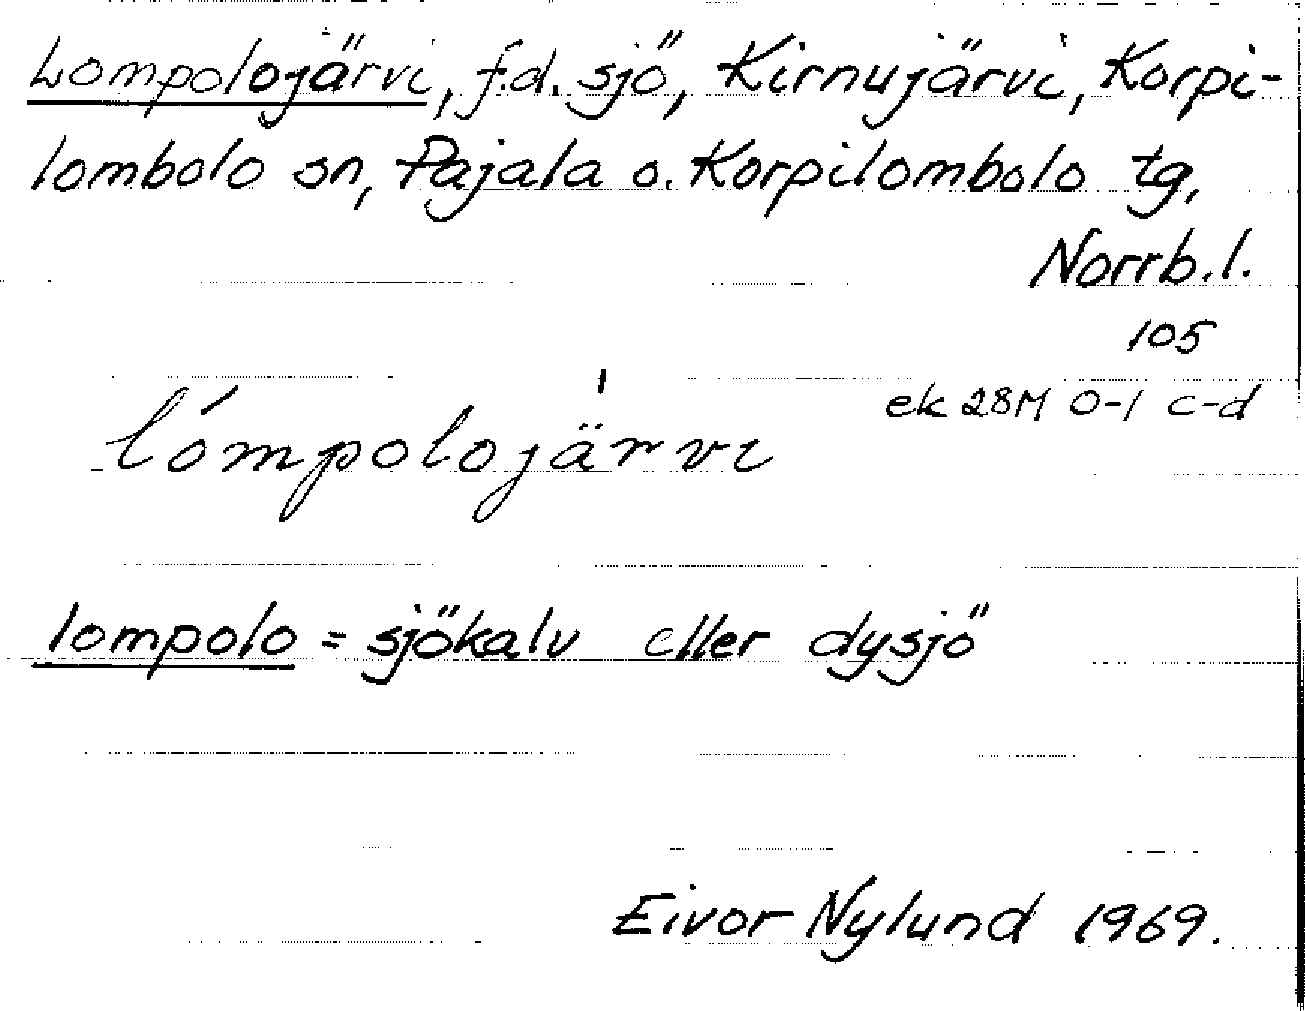 Lompolojärvi, f.d. sjö, Kirnujärvi, Korpi-
lombolo sn, Pajala o. Korpilombolo tg,
Norrb.l.
105
ek 28M 0-1 c-d
lómpolojä'rvi
lompolo = sjökalv eller dysjö
Eivor Nylund 1969.